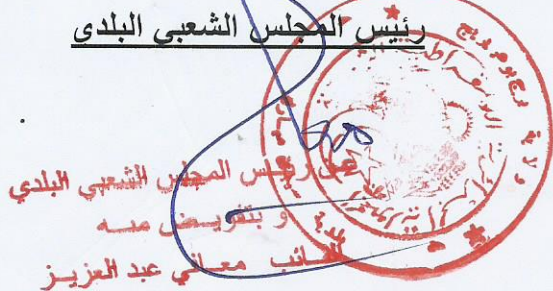 رئيس المجلس الشعبي البلدي
عن رئيس المجلس الشعبي البلدي
و بتفويض منه
النائب معاني عبد العزيز
ولاية برج بوعريريج